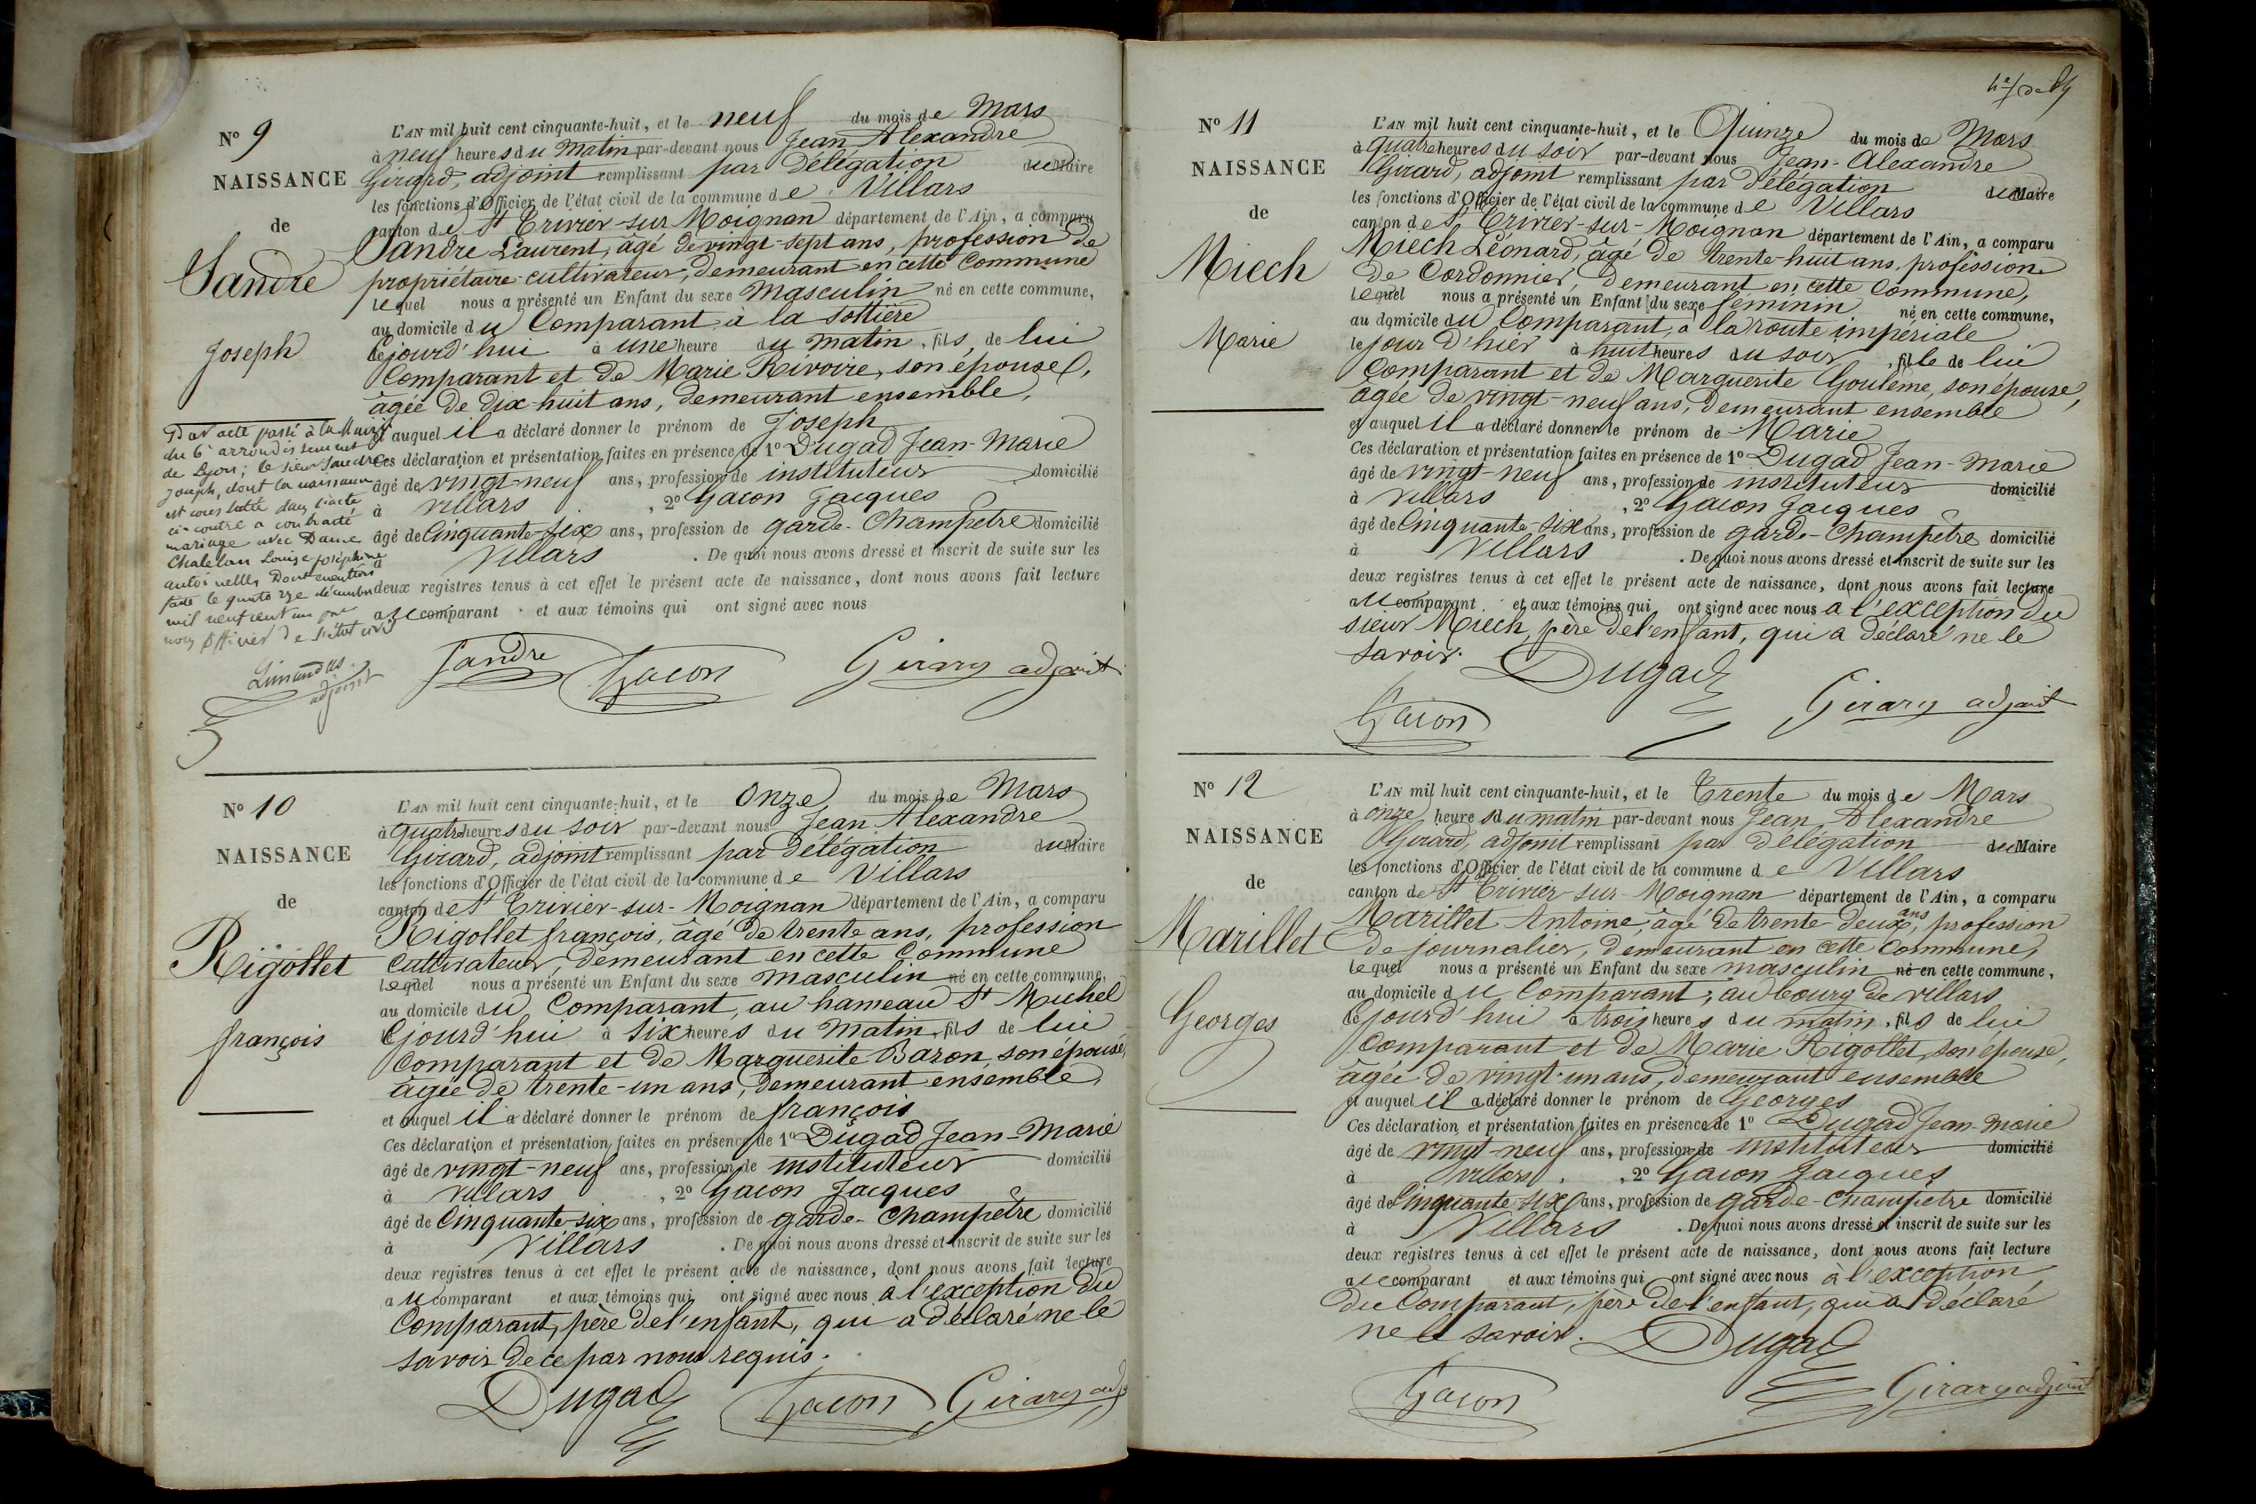 N° 9
NAISSANCE
de
Sandre
Joseph
L'AN mil huit cent cinquante-huit, et le neuf du mois de Mars
à neuf heures du Matin par-devant nous Jean Alexandre
Girard, adjoint remplissant par Délégation du Maire
les fonctions d'Officier de l'état civil de la commune de Villars
canton de St Trivier-sur-Moignan département de l'Ain, a comparu
Sandre Laurent, âgé de vingt-sept ans, profession de
propriétaire-cultivateur, demeurant en cette Commune
lequel nous a présenté un Enfant du sexe Masculin né en cette commune,
au domicile du Comparant, à la Sottière
Cejourd'hui à une heure du matin, fils, de lui
Comparant et de Marie Rivoire, son épouse,
âgée de dix-huit ans, demeurant ensemble,
et auquel il a déclaré donner le prénom de Joseph
Ces déclaration et présentation faites en présence de 1° Dugad Jean-Marie
âgé de vingt-neuf ans, profession de instituteur domicilié
à Villars, 2° Gacon Jacques
âgé de Cinquante-six ans, profession de garde-Champêtre domicilié
à Villars. De quoi nous avons dressé et inscrit de suite sur les
deux registres tenus à cet effet le présent acte de naissance, dont nous avons fait lecture
au comparant et aux témoins qui ont signé avec nous
Sandre Gacon Girard adjoint
Par acte passé à la Mairie
du 6e arrondissement
de Lyon; le sieur Sandre
Joseph, dont la naissance
est constatée dans l'acte
ci-contre a contracté
mariage avec Dame
Chatelan Louise Joséphine
Dont mention
faite le quatorze décembre
mil neuf cent un par
nous Officier de l'état civil
adjoint
N° 10
NAISSANCE
de
Rigollet
françois
L'AN mil huit cent cinquante-huit, et le Onze du mois de Mars
à quatre heures du soir par-devant nous Jean Alexandre
Girard, adjoint remplissant par délégation du Maire
les fonctions d'Officier de l'état civil de la commune de Villars
canton de St Trivier-sur-Moignan département de l'Ain, a comparu
Rigollet françois, âgé de trente ans, profession
Cultivateur, demeurant en cette Commune
lequel nous a présenté un Enfant du sexe masculin né en cette commune,
au domicile du Comparant, au hameau St Michel
Cejourd'hui à six heures du Matin, fils de lui
Comparant et de Marguerite Baron, son épouse,
âgée de trente-un ans, demeurant ensemble,
et auquel il a déclaré donner le prénom de françois
Ces déclaration et présentation faites en présence de 1° Dugad Jean-Marie
âgé de vingt-neuf ans, profession de instituteur domicilié
à Villars, 2° Gacon Jacques
âgé de Cinquante-six ans, profession de garde-champêtre domicilié
à Villars. De quoi nous avons dressé et inscrit de suite sur les
deux registres tenus à cet effet le présent acte de naissance, dont nous avons fait lecture
au comparant et aux témoins qui ont signé avec nous à l'exception du
Comparant, père de l'enfant, qui a déclaré ne le
savoir de ce par nous requis.
Dugad Gacon Girard adj
N° 11
NAISSANCE
de
Miech
Marie
L'AN mil huit cent cinquante-huit, et le Quinze du mois de Mars
à quatre heures du soir par-devant nous Jean-Alexandre
Girard, adjoint remplissant par délégation du Maire
les fonctions d'Officier de l'état civil de la commune de Villars
canton de St Trivier-sur-Moignan département de l'Ain, a comparu
Miech Léonard, âgé de trente-huit ans, profession
de Cordonnier, demeurant en cette Commune,
lequel nous a présenté un Enfant du sexe féminin né en cette commune,
au domicile du Comparant, à la route impériale
le jour d'hier à huit heures du soir, fille de lui
Comparant et de Marguerite Goulème, son épouse,
âgée de vingt-neuf ans, demeurant ensemble
et auquel il a déclaré donner le prénom de Marie
Ces déclaration et présentation faites en présence de 1° Dugad Jean-Marie
âgé de vingt-neuf ans, profession de instituteur domicilié
à Villars, 2° Gacon Jacques
âgé de Cinquante-six ans, profession de garde-Champêtre domicilié
à Villars. De quoi nous avons dressé et inscrit de suite sur les
deux registres tenus à cet effet le présent acte de naissance, dont nous avons fait lecture
au comparant et aux témoins qui ont signé avec nous à l'exception du
sieur Miech, père de l'enfant, qui a déclaré ne le
savoir.
Dugad
Gacon Girard adjoint
N° 12
NAISSANCE
de
Marillet
Georges
L'AN mil huit cent cinquante-huit, et le Trente du mois de Mars
à onze heures du matin par-devant nous Jean Alexandre
Girard, adjoint remplissant par délégation du Maire
les fonctions d'Officier de l'état civil de la commune de Villars
canton de St Trivier-sur-Moignan département de l'Ain, a comparu
Marillet Antoine, âgé de trente deux ans, profession
de journalier, demeurant en cette Commune,
lequel nous a présenté un Enfant du sexe masculin né en cette commune,
au domicile du Comparant, au bourg de Villars
Cejourd'hui à trois heures du matin, fils de lui
Comparant et de Marie Rigollet, son épouse,
âgée de vingt-un ans, demeurant ensemble
et auquel il a déclaré donner le prénom de Georges
Ces déclaration et présentation faites en présence de 1° Dugad Jean-Marie
âgé de vingt-neuf ans, profession de instituteur domicilié
à Villars, 2° Gacon Jacques
âgé de Cinquante-six ans, profession de garde-champêtre domicilié
à Villars. De quoi nous avons dressé et inscrit de suite sur les
deux registres tenus à cet effet le présent acte de naissance, dont nous avons fait lecture
au comparant et aux témoins qui ont signé avec nous à l'exception
du Comparant, père de l'enfant, qui a déclaré
ne le savoir.
Dugad
Gacon Girard adjoint